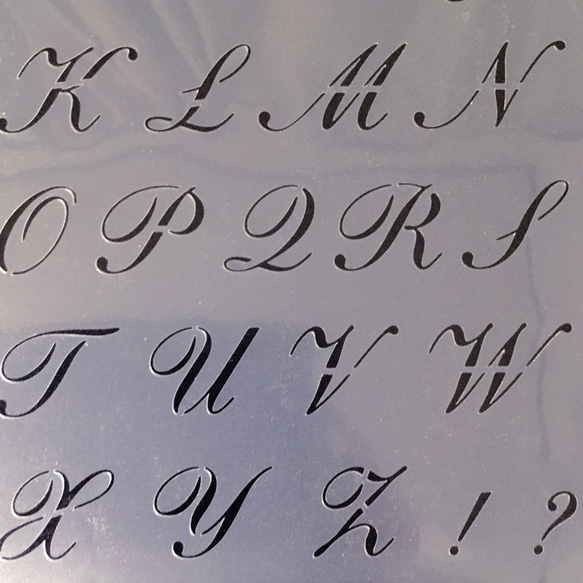 K L M N
O P Q R S
T U V W
X Y Z ! ?